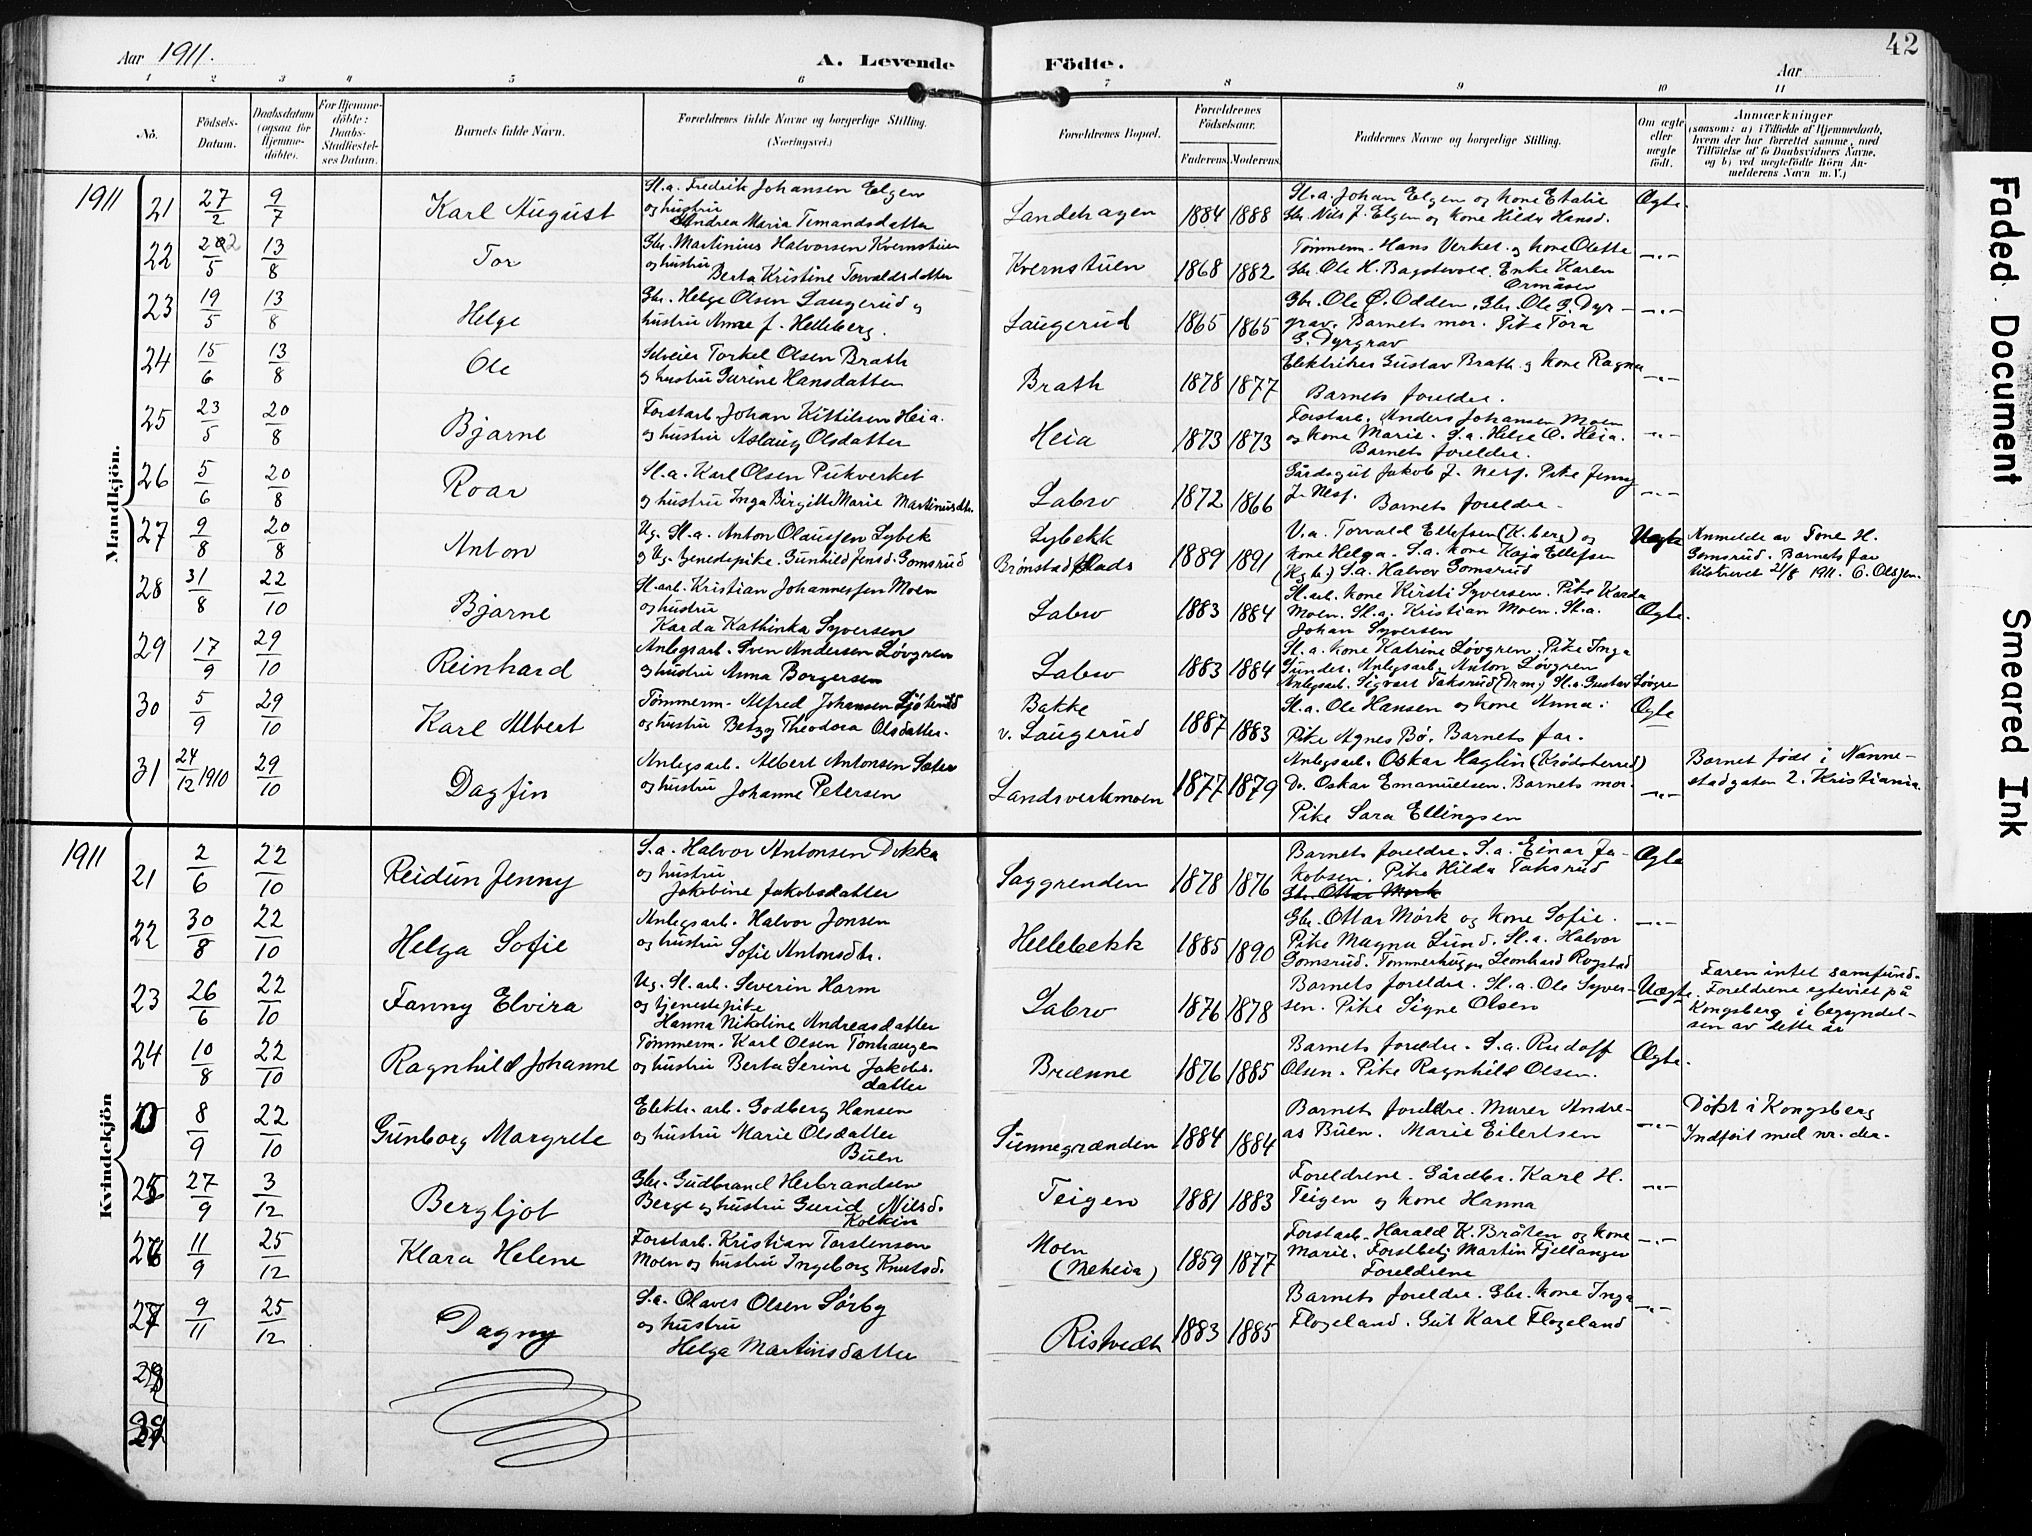 Aar 1911.
A. Levende Födte.
Aar
42
1 2 3 4 5 6 7 8 9 10 11
No.
Födsels-Datum.
Daabsdatum (ogsaa for Hjemme-döbte).
For Hjemme-döbte: Daabs-Stadfæstel-ses Datum.
Barnets fulde Navn.
Forældrenes fulde Navne og borgerlige Stilling. (Næringsvei.)
Forældrenes Bopæl.
Forældrenes Födselsaar.
Faderens. Moderens.
Faddernes Navne og borgerlige Stilling.
Om ægte eller uægte födt.
Anmærkninger
(saasom: a) i Tilfælde af Hjemmedaab,
hvem der har forrettet samme, med
Tilföielse af to Daabsvidners Navne,
og b) ved uægtefödte Börn An-
melderens Navn m. V.)
Mandkjön.
1911
21 27/2 9/7 Karl August
St.a. Fredrik Johansen Elgen
og hustru
Andrea Maria Timandsdatter
Landehagen 1884 1888
St.a. Johan Elgen og kone Etalie
Gbr. Nils J. Elgen og kone Hilda Hansd.
Ægte.
22 22/5 13/8 Tor
Gbr. Martinius Halvorsen Kvernstuen
og hustru
Berta Kristine Torvaldsdatter
Kvernstuen 1868 1882
Tømmerm. Hans Verket og kone Olette
Gbr. Ole H. Bagstevold. Enke Karen
Ormåsen
—"—
23 19/5 13/8 Helge
Gbr. Helge Olsen Laugerud og
hustru Anne J. Helleberg.
Laugerud 1865 1865
Gbr. Ole O. Odden. Gbr. Ole G. Dyr-
grav. Barnets mor. Pike Tora
G. Dyrgrav
—"—
24 15/6 13/8 Ole
Selveier Torkel Olsen Brath
og hustru Gurine Hansdatter
Brath 1878 1877
Elektriker Gustav Brath og kone Ragna
Barnets foreldre.
—"—
25 23/5 20/8 Bjarne
Forstarb. Johan Kittilsen Heia.
og hustru Aslaug Olsdatter
Heia 1873 1873
Forstarb. Anders Johansen Moen
og kone Marie. S.a. Helge O. Heia.
Barnets foreldre.
—"—
26 5/6 20/8 Roar
St.a. Karl Olsen Pukverket
og hustru Inga Birgitte Marie Martinusdtr.
Labro 1872 1866
Gårdsgut Jakob J. Nesf. Pike Jenny
J. Nesf. Barnets foreldre.
—"—
27 9/8 20/8 Anton
Ug. St.a. Anton Olaussen Lybek
og Ug. tjenestepike. Gunhild Jensd. Gomsrud
Lybekk
Brønstad plads 1889 1891
V.a. Torvald Ellefsen (K.berg) og
kone Helga. S.a. kone Kaja Ellefsen
(Kgb.) S.a. Halvor Gomsrud
Uægte
Anmeldt av Tone H.
Gomsrud. Barnets far
tilskrevet 21/8 1911. C. Olssen.
28 31/8 22/10 Bjarne
St.arb. Kristian Johannessen Moen
og hustru
Karda Kathinka Syversen
Labro 1883 1884
St.arb. kone Kirsti Syversen. Pike Karda
Moen. St.a. Kristian Moen. St.a.
Johan Syversen
Ægte.
29 17/9 29/10 Reinhard
Anlegsarb. Sven Andersen Løvgren
og hustru Anna Borgersen
Labro 1883 1884
St.a. kone Katrine Løvgren. Pike Inga
Gunder. Anlegsarb. Anton Løvgren
Anlegsarb. Sigvart Taksrud (Drm.) St.a. Gustav Løvgren
30 5/9 29/10 Karl Albert
Tømmerm. Alfred Johansen
og hustru Betzy Theodora Olsdatter.
Bakke
v. Laugerud 1887 1883
St.a. Ole Hansen og kone Anna.
Pike Agnes Bø. Barnets far.
Ægte
31 24/12 1910 29/10 Dagfin
Anlegsarb. Albert Antonsen Sæter
og hustru Johanne Petersen
Landsverkmoen 1877 1879
Anlegsarb. Oskar Haglin (Krødsherred)
Do. Oskar Emanuelsen. Barnets mor.
Pike Sara Ellingsen
—"—
Barnet født i Nanne-
stadgaten 2. Kristiania.
Kvindekjön
1911
21 2/6 22/10 Reidun Jenny
S.a. Halvor Antonsen Dokka
og hustru
Jakobine Jakobsdatter
Saggrenden 1878 1876
Barnets foreldre. S.a. Einar Ja-
kobsen. Pike Hilda Taksrud
Gbr. Ottar Mørk
Ægte
22 30/8 22/10 Helga Sofie
Anlegsarb. Halvor Jonsen
og hustru
Sofie Antonsdtr.
Hellebekk 1885 1890
Gbr. Ottar Mørk og kone Sofie.
Pike Magna Lund. St.a. Halvor
Gomsrud. Tømmerhugger Leonhard Rogstad
—"—
23 26/6 22/10 Fanny Elvira
Ug. St. arb. Severin Harm
og tjenestepike
Hanna Nikoline Andreasdatter
Labro 1876 1878
Barnets foreldre. St.a. Ole Syver-
sen. Pike Signe Olsen
Uægte.
Faren intet samfund.
Foreldrene egteviet på
Kongsberg i begyndel-
sen av dette år
24 10/8 22/10 Ragnhild Johanne
Tømmerm. Karl Olsen Tonhaugen
og hustru Berta Serine Jakobs-
datter
Brænne 1876 1885
Barnets foreldre. S.a. Rudolf
Olsen. Pike Ragnhild Olsen.
Ægte.
0 8/9 22/10 Gunborg Margrete
Elektr. arb. Godberg Hansen
og hustru Marie Olsdatter
Buen
Sunnegrænden 1884 1884
Barnets foreldre. Murer Andre-
as Buen. Marie Eilertsen
—"—
Døbt i Kongsberg
Indført med nr. der.
25 27/9 3/12 Bergljot
Gbr. Gudbrand Herbrandsen
Berge og hustru Gurid Nilsd.
Kolkin
Teigen 1881 1883
Foreldrene. Gårdbr. Karl H.
Teigen og kone Hanna
—"—
26 11/9 25/12 Klara Helene
Forstarb. Kristian Torstensen
Moen og hustru Ingeborg Knutsd.
Moen
(Meheia) 1859 1877
Forstarb. Harald K. Bråten og kone
Marie. Forstbetj. Martin Fjellanger
Foreldrene
—"—
27 9/11 25/12 Dagny
S.a. Olaves Olsen Sørby
og hustru
Helga Martinisdatter
Ristvedt 1883 1885
Barnets foreldre. Gbr. kone Inga
Flogeland. Gut Karl Flogeland
—"—
28
29
Faded Document
Smeared Ink